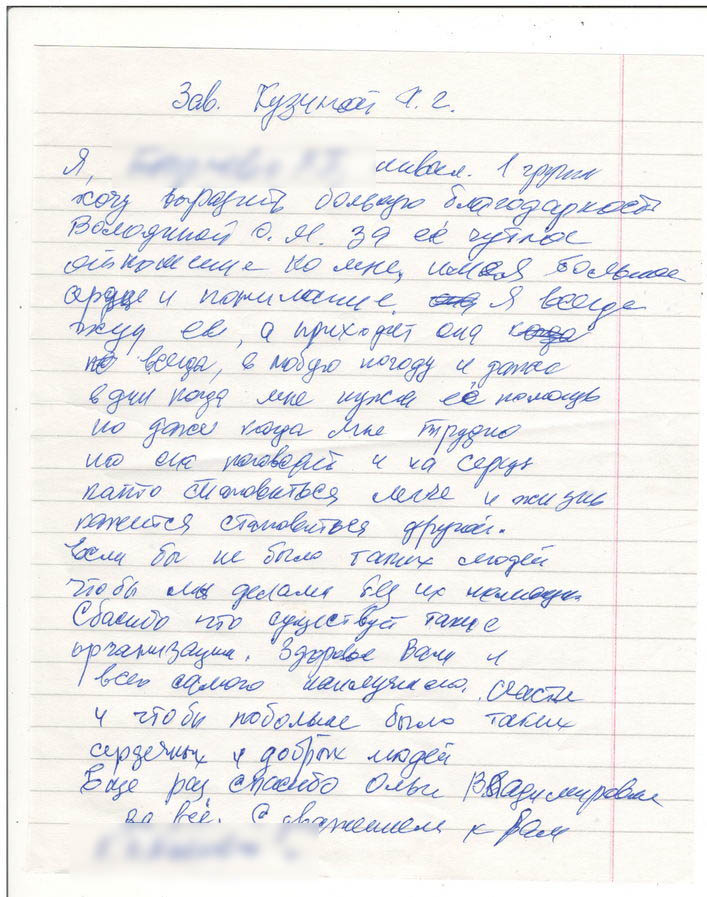 Зав. Кузиной Х. Г.
Я, инвал. 1 группы
хочу выразить большую благодарность
Володиной О. М. за её чуткое
отношение ко мне, имея большое
сердце и понимание. Я всегда
жду её, а приходит она
всегда, в любую погоду и даже
в дни когда мне нужна её помощь
но даже когда мне трудно
но она поговорит и на сердце
както становиться легче и жизнь
кажется становиться другой.
Если бы не было таких людей
чтобы мы делали без их помощи
Спасибо что существует такие
организации. Здоровье Вам и
всего самого наилучшего, счастье
и чтобы побольше было таких
сердечных и добрых людей
Еще раз спасибо Ольги Владимировне
за всё. С уважением к Вам